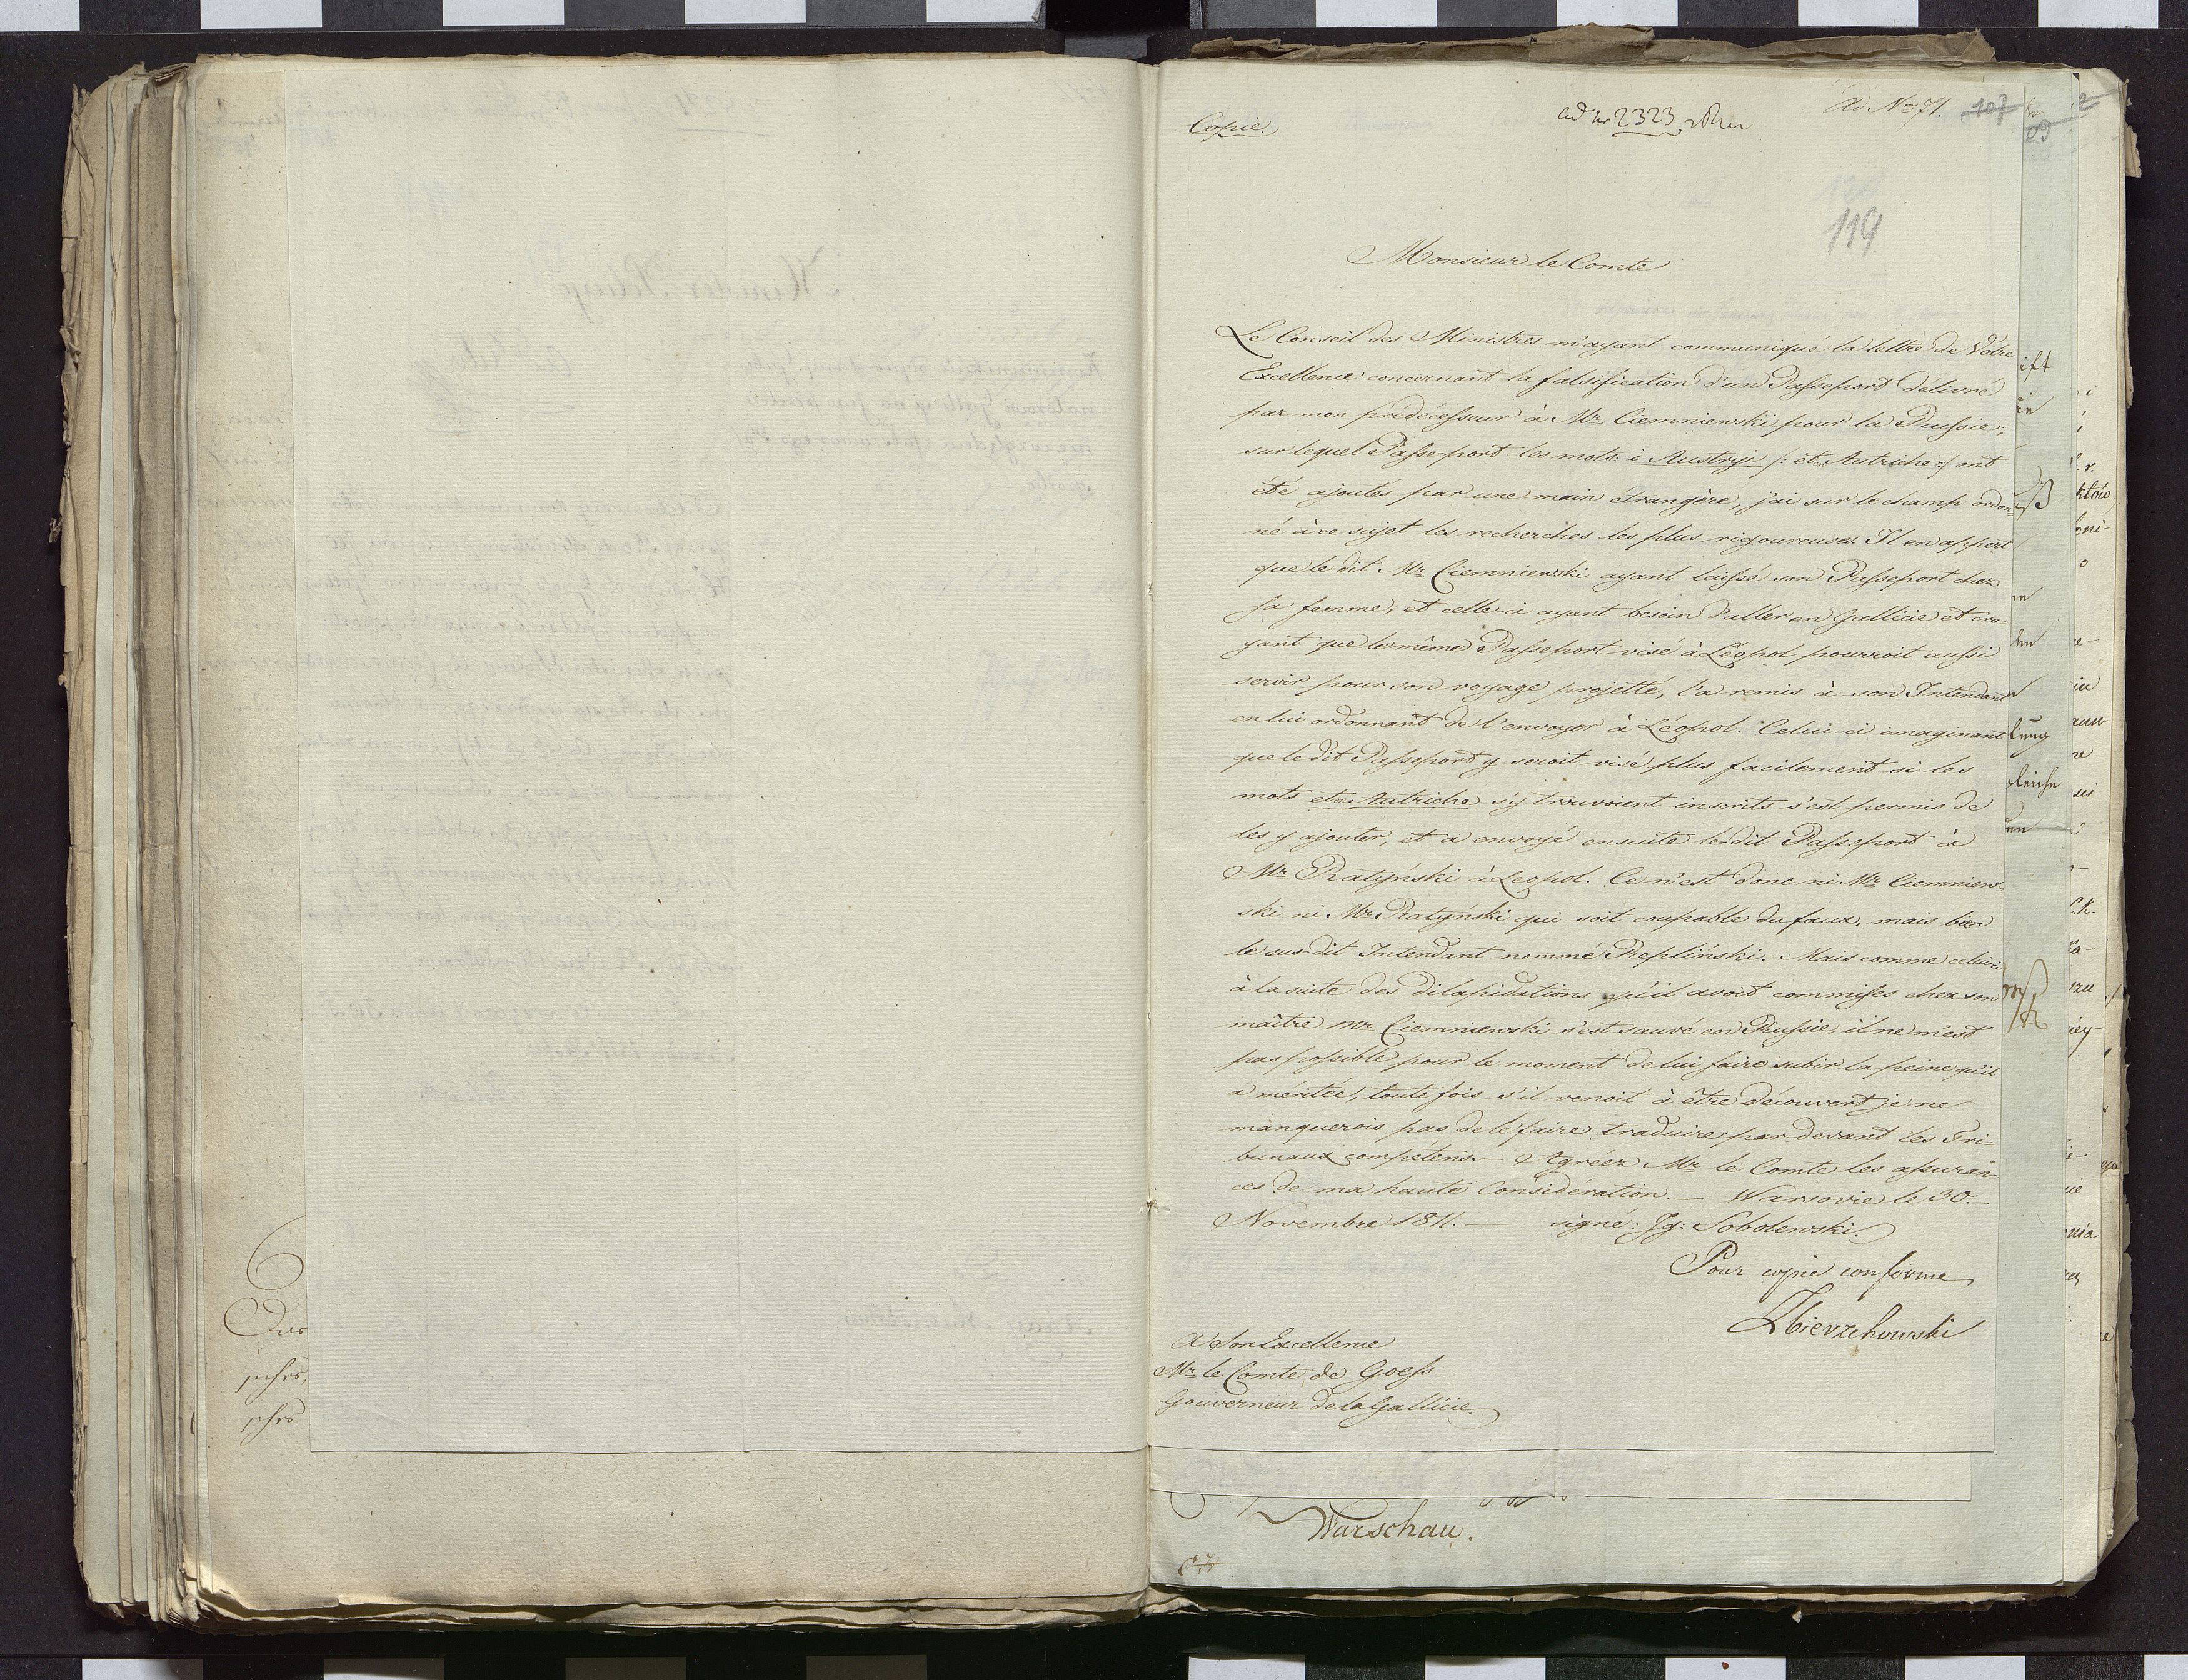 Copie.
ad nr 2323
Ad Nro 71.
107
119
Monsieur le Comte
Le Conseil des Ministres m'ayant communiqué la lettre de Votre
Excellence concernant la falsification d'un Passeport délivré
par mon prédécesseur à Mr Ciemniewski pour la Prussie,
sur lequel Passeport les mots: i Austryi /: et Autriche :/ ont
été ajoutés par une main étrangère, j'ai sur le champ ordon=
né à ce sujet les recherches les plus rigoureuses. Il en appert
que le dit Mr Ciemniewski ayant laissé son Passeport chez
sa femme, et celle-ci ayant besoin d'aller en Gallicie et cro=
yant que le même Passeport visé à Léopol pourroit aussi
servir pour son voyage projetté, l'a remis à son Intendant
en lui ordonnant de l'envoyer à Léopol. Celui-ci imaginant
que le dit Passeport y seroit visé plus facilement si les
mots et Autriche s'y trouvoient inscrits s'est permis de
les y ajouter, et a envoyé ensuite le dit Passeport à
Mr Ratyński à Leopol. Ce n'est donc ni Mr Ciemniew=
ski ni Mr Ratyński qui soit coupable du faux, mais bien
le sus-dit Intendant nommé Repliński. Mais comme celui-ci
à la suite des dilapidations qu'il avoit commises chez son
maître Mr Ciemniewski s'est sauvé en Russie, il ne m'est
pas possible pour le moment de lui faire subir la peine qu'il
a méritée, toute fois s'il venoit à être découvert je ne
manquerois pas de le faire traduire par devant les Tri=
bunaux compétens. – Agréez Mr le Comte les assuran=
ces de ma haute Considération. – Warsovie le 30.
Novembre 1811. – signé: Ig: Sobolewski.
Pour copie conforme
Zbierzchowski
A Son Excellence
Mr le Comte de Goess
Gouverneur de la Gallicie.
Warschau.